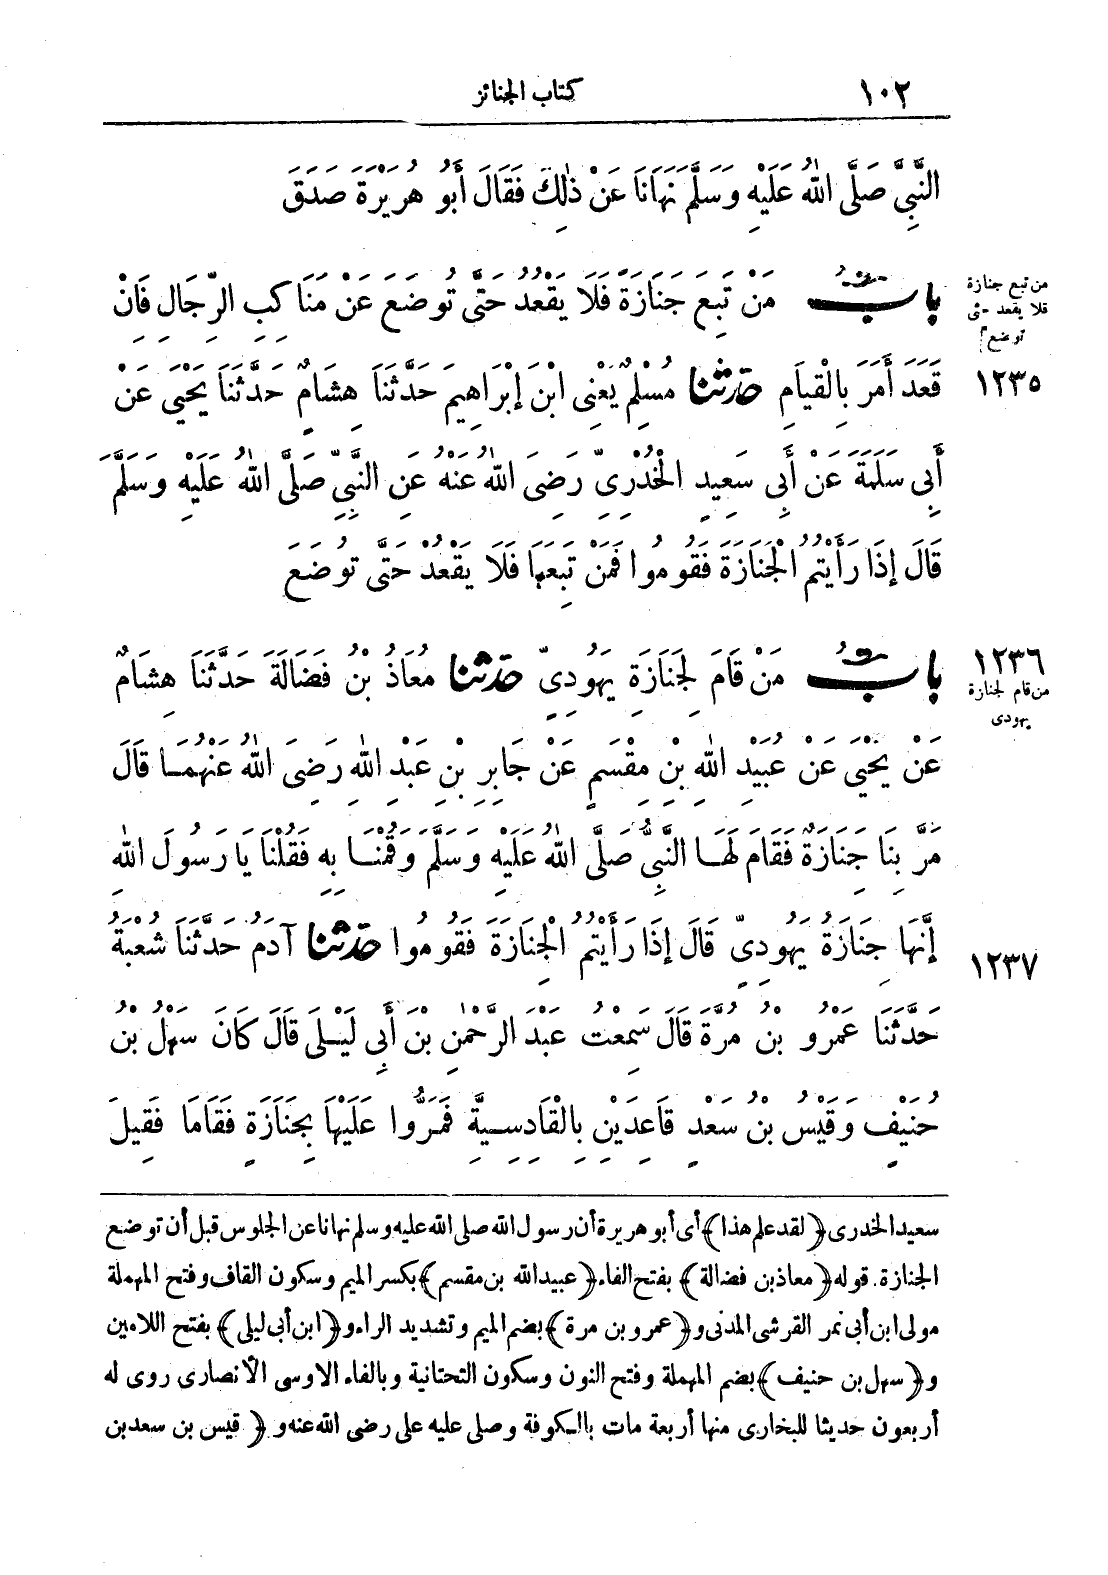 ١٠٢ كتاب الجنائز
النَّبِيَّ صَلَّى اللهُ عَلَيْهِ وَسَلَّمَ نَهَانَا عَنْ ذٰلِكَ فَقَالَ أَبُو هُرَيْرَةَ صَدَقَ
بابٌ مَنْ تَبِعَ جَنَازَةً فَلَا يَقْعُدُ حَتَّى تُوضَعَ عَنْ مَنَاكِبِ الرِّجَالِ فَإِنْ
من تبع جنازة
فلا يقعد حتى
توضع
قَعَدَ أُمِرَ بِالْقِيَامِ حَدَّثَنَا مُسْلِمٌ يَعْنِى ابْنَ إِبْرَاهِيمَ حَدَّثَنَا هِشَامٌ حَدَّثَنَا يَحْيَى عَنْ
١٢٣٥
أَبِى سَلَمَةَ عَنْ أَبِى سَعِيدٍ الْخُدْرِىِّ رَضِىَ اللهُ عَنْهُ عَنِ النَّبِىِّ صَلَّى اللهُ عَلَيْهِ وَسَلَّمَ
قَالَ إِذَا رَأَيْتُمُ الْجَنَازَةَ فَقُومُوا فَمَنْ تَبِعَهَا فَلَا يَقْعُدْ حَتَّى تُوضَعَ
بابٌ مَنْ قَامَ لِجَنَازَةِ يَهُودِىٍّ حَدَّثَنَا مُعَاذُ بْنُ فَضَالَةَ حَدَّثَنَا هِشَامٌ
١٢٣٦
من قام لجنازة
يهودى
عَنْ يَحْيَى عَنْ عُبَيْدِ اللهِ بْنِ مِقْسَمٍ عَنْ جَابِرِ بْنِ عَبْدِ اللهِ رَضِىَ اللهُ عَنْهُمَا قَالَ
مَرَّ بِنَا جَنَازَةٌ فَقَامَ لَهَا النَّبِىُّ صَلَّى اللهُ عَلَيْهِ وَسَلَّمَ وَقُمْنَا بِهِ فَقُلْنَا يَا رَسُولَ اللهِ
إِنَّهَا جِنَازَةُ يَهُودِىٍّ قَالَ إِذَا رَأَيْتُمُ الْجِنَازَةَ فَقُومُوا حَدَّثَنَا آدَمُ حَدَّثَنَا شُعْبَةُ
١٢٣٧
حَدَّثَنَا عَمْرُو بْنُ مُرَّةَ قَالَ سَمِعْتُ عَبْدَ الرَّحْمٰنِ بْنَ أَبِى لَيْلَى قَالَ كَانَ سَهْلُ بْنُ
حُنَيْفٍ وَقَيْسُ بْنُ سَعْدٍ قَاعِدَيْنِ بِالْقَادِسِيَّةِ فَمَرُّوا عَلَيْهِمَا بِجَنَازَةٍ فَقَامَا فَقِيلَ
سعيد الخدرى ﴿لقد علم هذا﴾ أى أبو هريرة أن رسول الله صلى الله عليه وسلم نهانا عن الجلوس قبل أن توضع
الجنازة. قوله ﴿معاذ بن فضالة﴾ بفتح الفاء ﴿عبيد الله بن مقسم﴾ بكسر الميم وسكون القاف وفتح المهملة
مولى ابن أبى نمر القرشى المدنى و﴿عمرو بن مرة﴾ بضم الميم وتشديد الراء و﴿ابن أبى ليلى﴾ بفتح اللامين
و﴿سهل بن حنيف﴾ بضم المهملة وفتح النون وسكون التحتانية وبالفاء الاوسى الأنصارى روى له
أربعون حديثا للبخارى منها أربعة مات بالكوفة وصلى عليه على رضى الله عنه و﴿قيس بن سعد بن